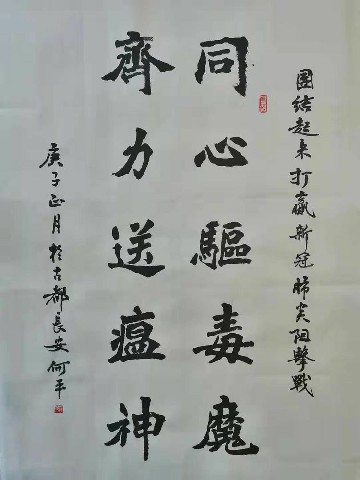 團结起来打赢新冠肺炎阻擊戰
同心驅毒魔
齊力送瘟神
庚子正月於古都長安何平